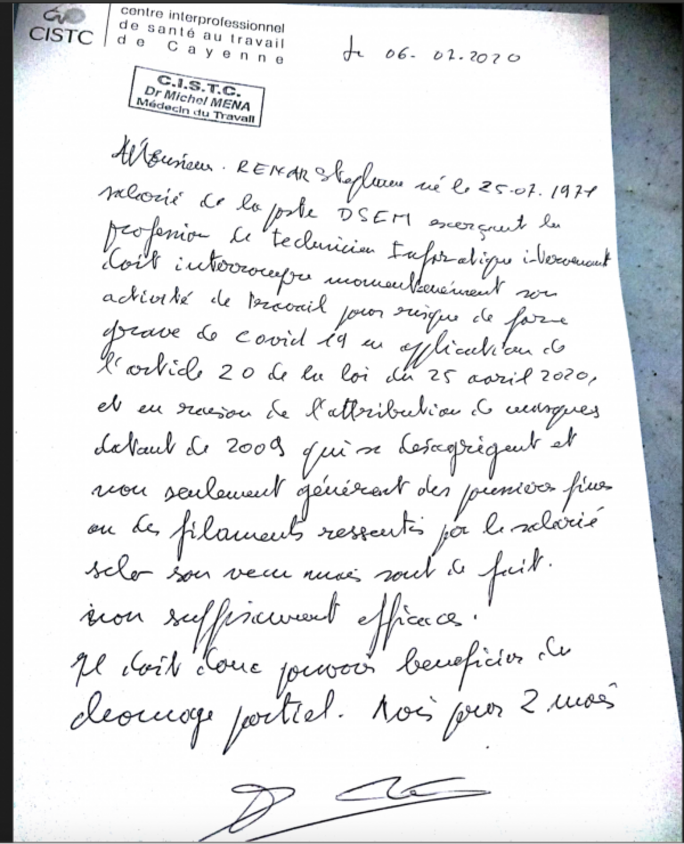 CISTC
centre interprofessionnel
de santé au travail
de Cayenne
le 06. 07. 2020
C.I.S.T.C.
Dr Michel MENA
Médecin du Travail
Monsieur. RENAR né le 25.07.1971
salarié de la poste DSEM exerçant la
profession de technicien Informatique intervenant
doit interrompre momentanément son
activité de travail pour risque de forme
grave de covid 19 en application de
l'article 20 de la loi du 25 avril 2020,
et en raison de l'attribution de masques
datant de 2009 qui se desagrègent et
non seulement générent des poussières fines
ou des filaments ressentis par le salarié
selon son vecu mais sont de fait.
non suffisamment efficaces.
Il doit donc pouvoir beneficier du
chomage partiel. pour 2 mois